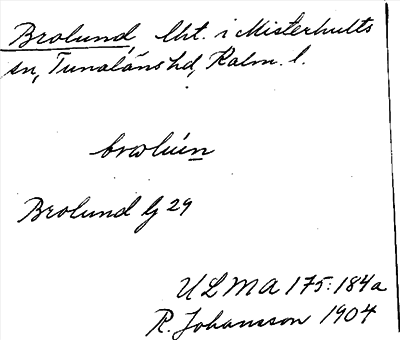 Brolund, lht. i Misterhults
sn, Tunaläns hd, Kalm. l.
Brolund lj 29
ULMA 175:184a
R. Johansson 1904